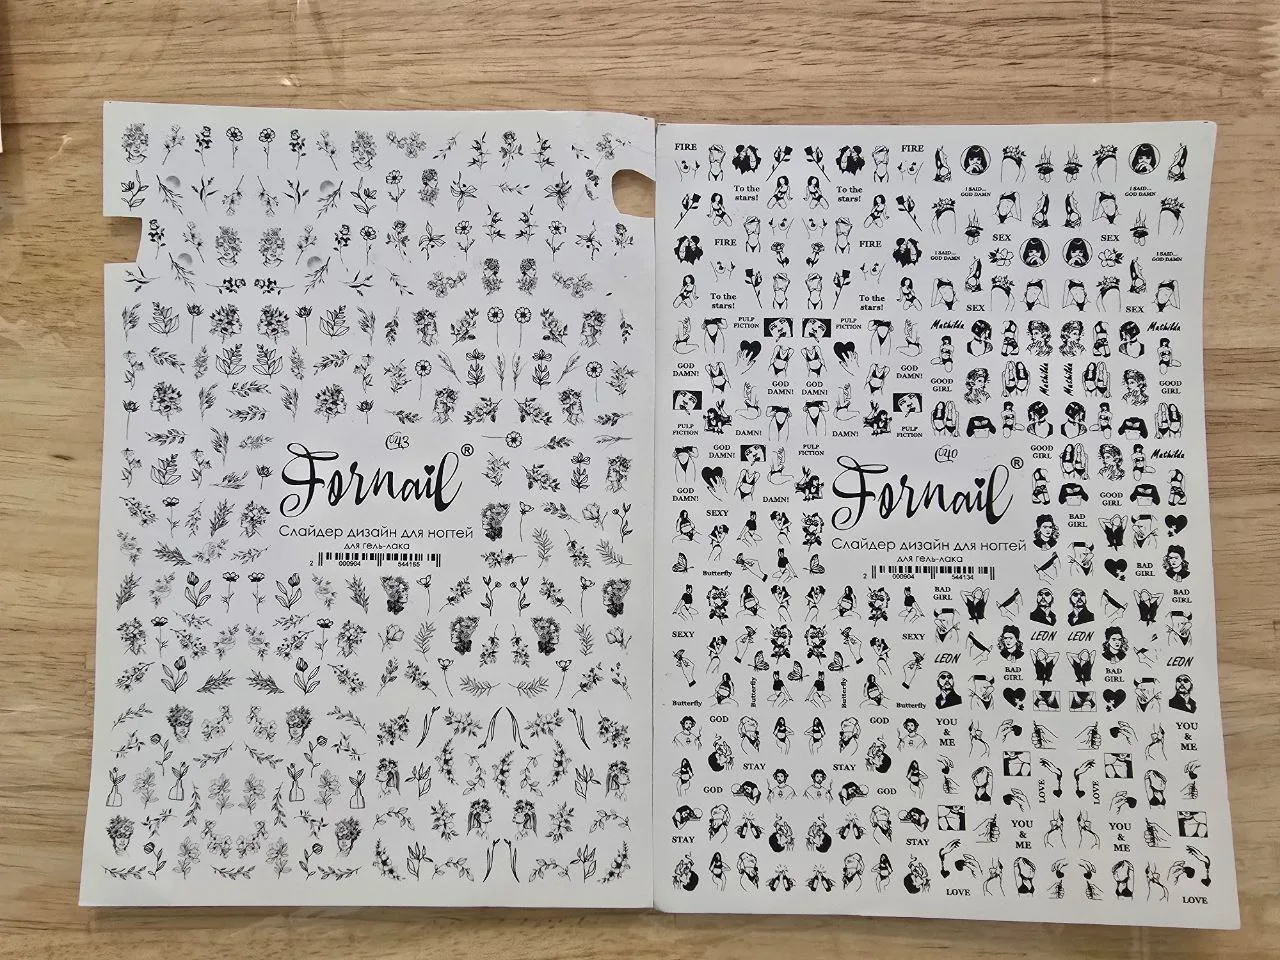 СЧ3
Fornail®
Слайдер дизайн для ногтей
для гель-лака
2 000904 544165
FIRE
FIRE
To the
stars!
To the
stars!
I SAID...
GOD DAMN
I SAID...
GOD DAMN
FIRE
FIRE
SEX
SEX
I SAID...
GOD DAMN
I SAID...
GOD DAMN
To the
stars!
To the
stars!
SEX
SEX
PULP
FICTION
PULP
FICTION
Mathilda
Mathilda
GOD
DAMN!
GOD
DAMN!
GOD
DAMN!
GOD
DAMN!
GOOD
GIRL
Mathilda
Mathilda
GOOD
GIRL
PULP
FICTION
DAMN!
DAMN!
PULP
FICTION
GOD
DAMN!
PULP
FICTION
GOOD
GIRL
Mathilda
GOD
DAMN!
DAMN!
GOOD
GIRL
СЧ0
Fornail®
Слайдер дизайн для ногтей
для гель-лака
2 000904 544134
SEXY
BAD
GIRL
Butterfly
BAD
GIRL
BAD
GIRL
BAD
GIRL
SEXY
SEXY
LEON
LEON
LEON
LEON
BAD
GIRL
BAD
GIRL
Butterfly
Butterfly
Butterfly
Butterfly
GOD
GOD
YOU
&
ME
YOU
&
ME
STAY
STAY
GOD
GOD
LOVE
LOVE
YOU
&
ME
YOU
&
ME
STAY
STAY
LOVE
LOVE